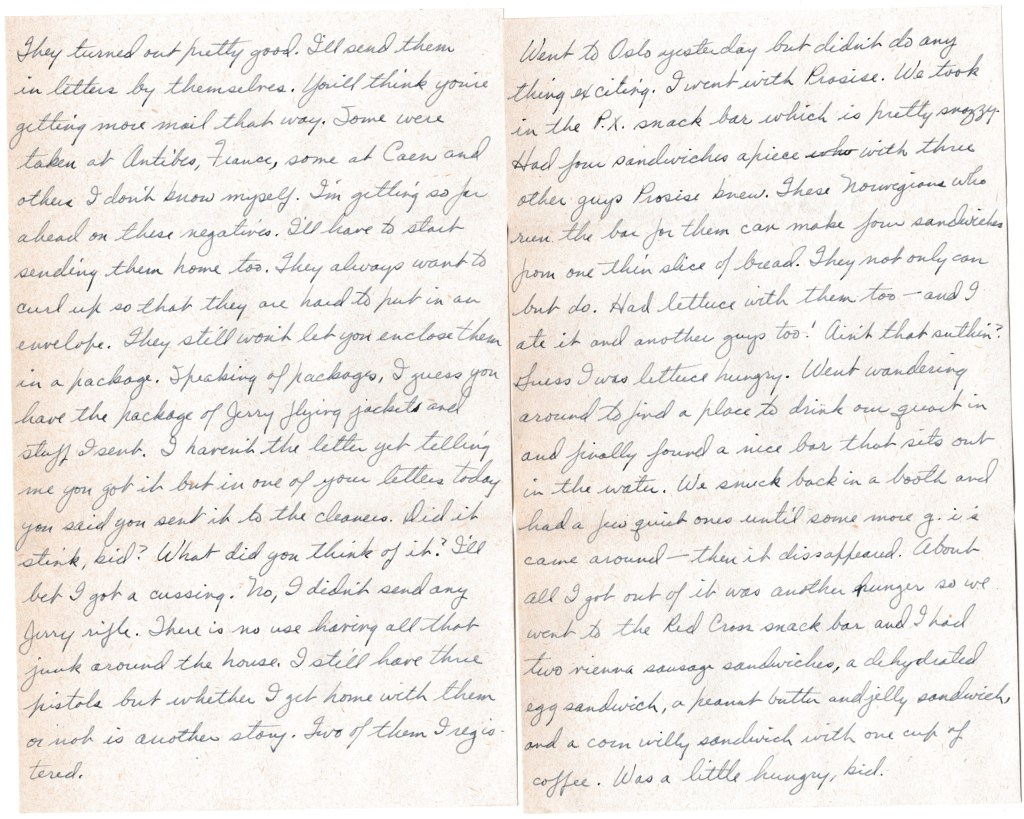 They turned out pretty good. I'll send them
in letters by themselves. You'll think you're
getting more mail that way. Some were
taken at Antibes, France, some at Caen and
others I don't know myself. I'm getting so far
ahead on these negatives. I'll have to start
sending them home too. They always want to
curl up so that they are hard to put in an
envelope. They still won't let you enclose them
in a package. Speaking of packages, I guess you
have the package of Jerry flying jackets and
stuff I sent. I haven't the letter yet telling
me you got it but in one of your letters today
you said you sent it to the cleaners. Did it
stink, kid? What did you think of it? I'll
bet I got a cussing. No, I didn't send any
Jerry rifle. There is no use having all that
junk around the house. I still have three
pistols but whether I get home with them
or not is another story. Two of them I regis-
tered.
Went to Oslo yesterday but didn't do any
thing exciting. I went with Prosise. We took
in the P.X. snack bar which is pretty snazzy.
Had four sandwiches apiece who with three
other guys Prosise knew. These Norwegians who
run the bar for them can make four sandwiches
from one thin slice of bread. They not only can
but do. Had lettuce with them too – and I
ate it and another guys too! Ain't that suthin?
Guess I was lettuce hungry. Went wandering
around to find a place to drink our quart in
and finally found a nice bar that sits out
in the water. We snuck back in a booth and
had a few quiet ones until some more g.i.'s
came around – then it dissappeared. About
all I got out of it was another hunger so we
went to the Red Cross snack bar and I had
two vienna sausage sandwiches, a dehydrated
egg sandwich, a peanut butter and jelly sandwich,
and a corn willy sandwich with one cup of
coffee. Was a little hungry, kid.